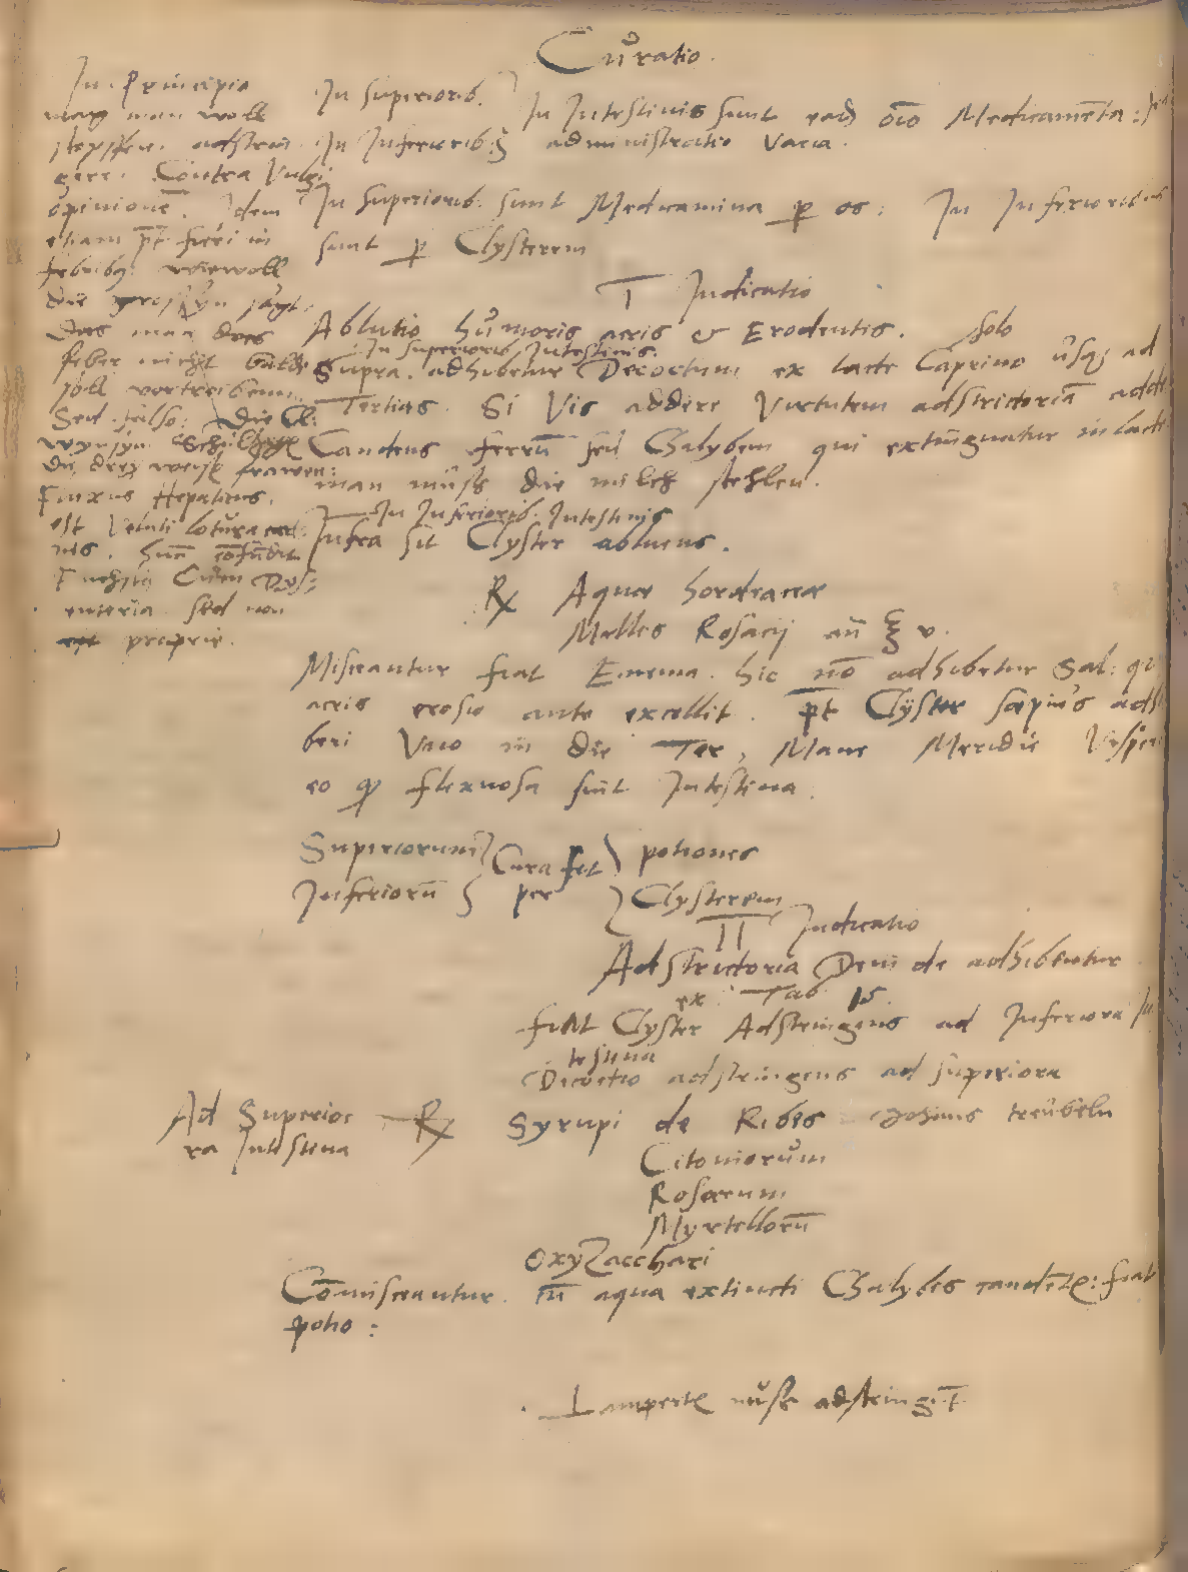 Curatio.
In Principio
mag man woll
stopffen. adstrin
gere. Contra Vulgi
opinionē. Idem
etiam p̄t fieri in
febribq; wiewoll
die sagt:
Das man das
feber nicht baldt
soll vertreibenn.
Sed falso: Die Cl:
die drey weisse frawen:
Fluxus Hepaticus.
est Veluti lotura car
nis. hunc cōfudit
Fuchsiq Cum Dys:
enteria sed non
est proprie.
In superiorib.
In Inferiorib;
In Intestinis sunt ead oīo Medicamēta: sed
administratio Varia.
In superiorib: sunt Medicamina p os: In Inferioribus
sunt p Clysterem
I Indicatio
Ablutio hŭmoris acris & Erodentis. solo
In superiorib Intestinis.
Supra. adhibetur Decoctum ex lacte Caprino usq; ad
Tertias. Si Vis addere Virtutem adstrictoriā adde
Candens ferrū seu Chalybem qui extinguatur in lacte
man muss die milch stehlen.
In Inferiorib. Intestinis
Infra sit Clyster abluens.
℞ Aquae hordeaceae
Mellis Rosacij an̄ ℥ v.
Misceantur fiat Enema. hic nō adhibetur Sal: qu
acris erosio ante excellit. p̄t Clÿster sæpius adhi
beri Vno in die Ter, Mane Meridie Vesperi
eo qp flexuosa sint Intestina.
Superiorum
Inferiorū
Cura fit
per
potiones
Clysterem
II Indicatio
Adstrictoria Dein de adhibentur
ex Tab 15.
fiat Clyster Adstringens ad Inferiora In
testina
Decoctio adstringens ad superiora
Ad Superio
ra Intestina
℞ Syrupi de Ribes Johāns treŭbeln
Citoniorŭm
Rosarum
Myrtellorū
OxyZacchari
Comisceantur in aqua extincti Chalybes candētꝭ: fiat
potio:
Lampertꝭ nŭss adstringūt